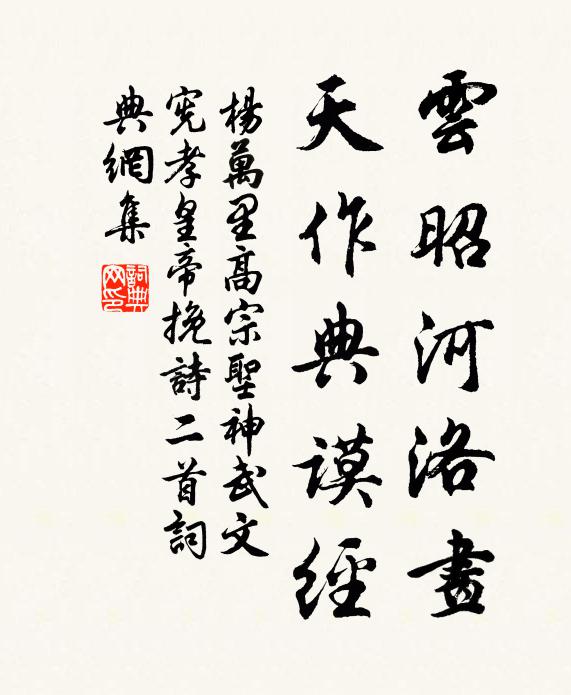 雲昭河洛畫
天作典謨經
楊萬里高宗聖神武文
憲孝皇帝挽詩二首詞
典網集
詞典
网印